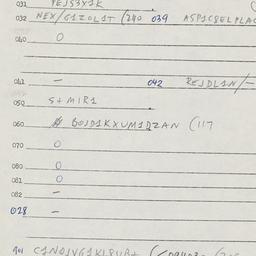 031 YEJS3X1K
032 NEX/G1ZOL1T (240 039 ASP1C8ELPLAC
040 O
041 – 042 REJDL1N/–
050 S+MIR1
060 BOJD1KXUM1DZAN (117
070 O
080 O
081 O
082 –
028 –